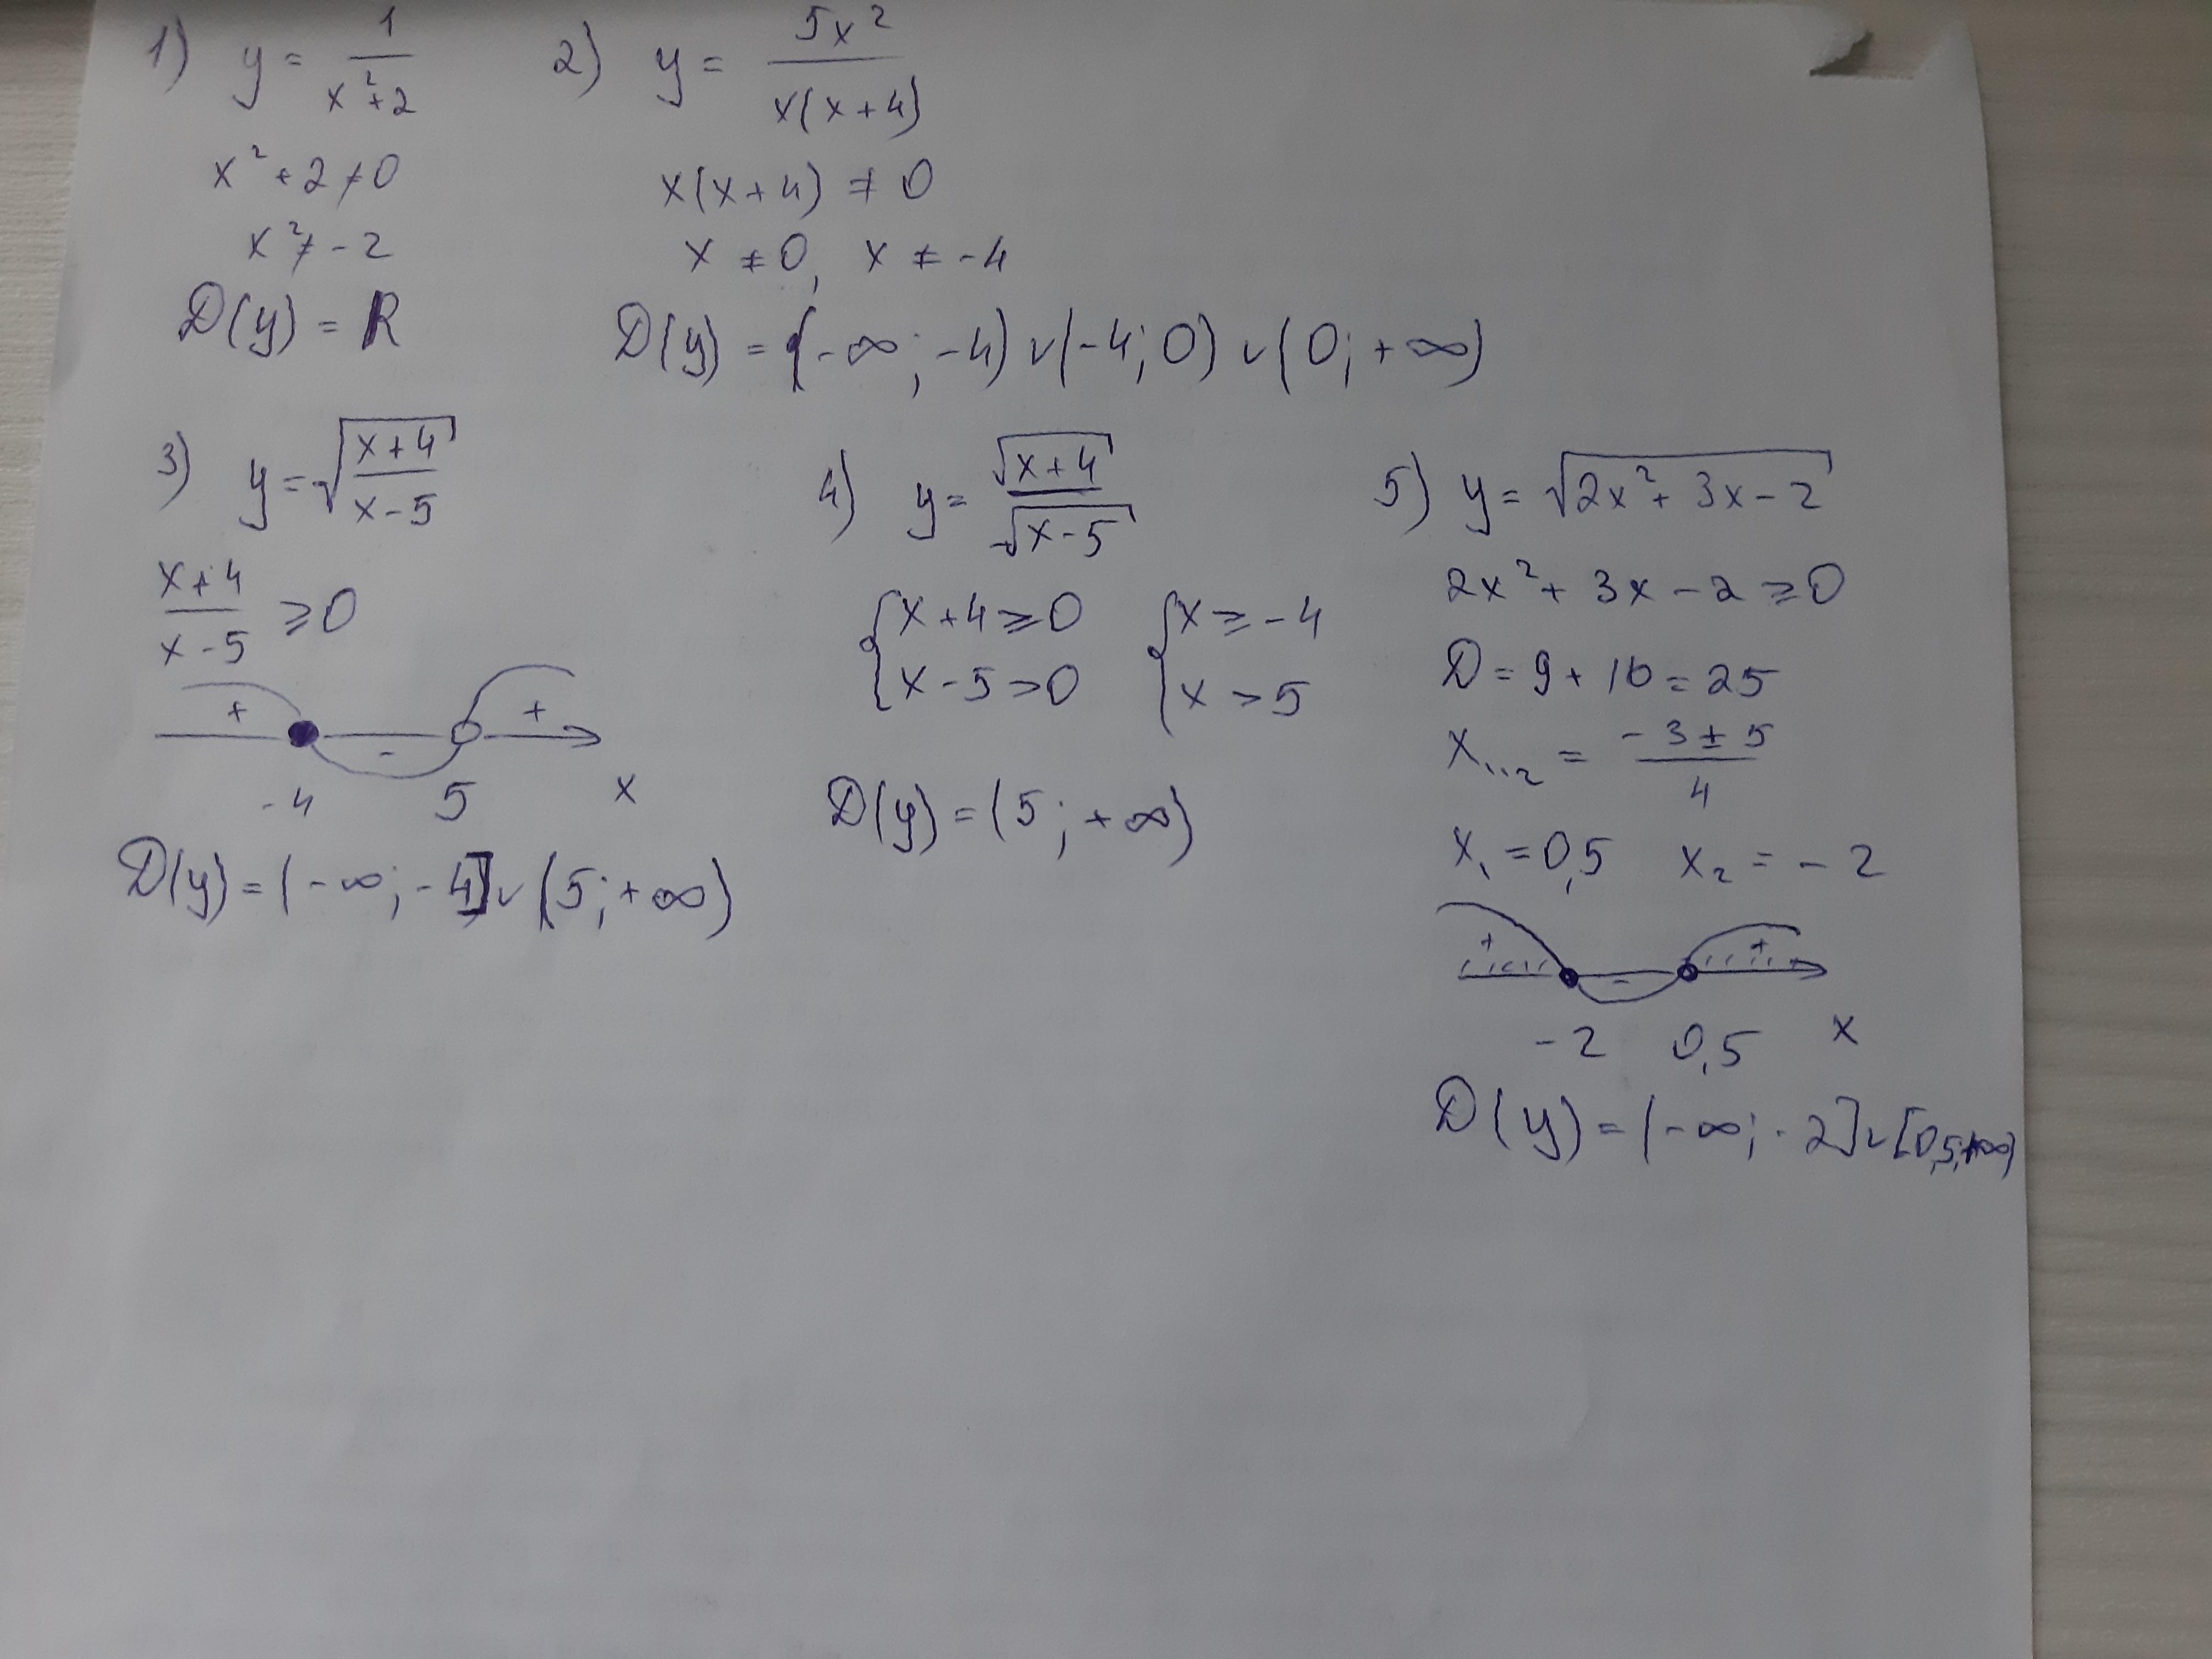 1) y = 1/(x²+2)
x² + 2 ≠ 0
x² ≠ - 2
D(y) = R
2) y = 5x²/(x(x+4))
x(x+4) ≠ 0
x ≠ 0, x ≠ -4
D(y) = (-∞; -4) ∪ (-4; 0) ∪ (0; +∞)
3) y = √((x+4)/(x-5))
(x+4)/(x-5) ≥ 0
+ - +
-4 5 x
D(y) = (-∞; -4] ∪ (5; +∞)
4) y = √(x+4)/√(x-5)
{x+4 ≥ 0 {x ≥ -4
{x-5 > 0 {x > 5
D(y) = (5; +∞)
5) y = √(2x² + 3x - 2)
2x² + 3x - 2 ≥ 0
D = 9 + 16 = 25
x₁,₂ = (-3 ± 5)/4
x₁ = 0,5 x₂ = -2
+ - +
-2 0,5 x
D(y) = (-∞; -2] ∪ [0,5; +∞)